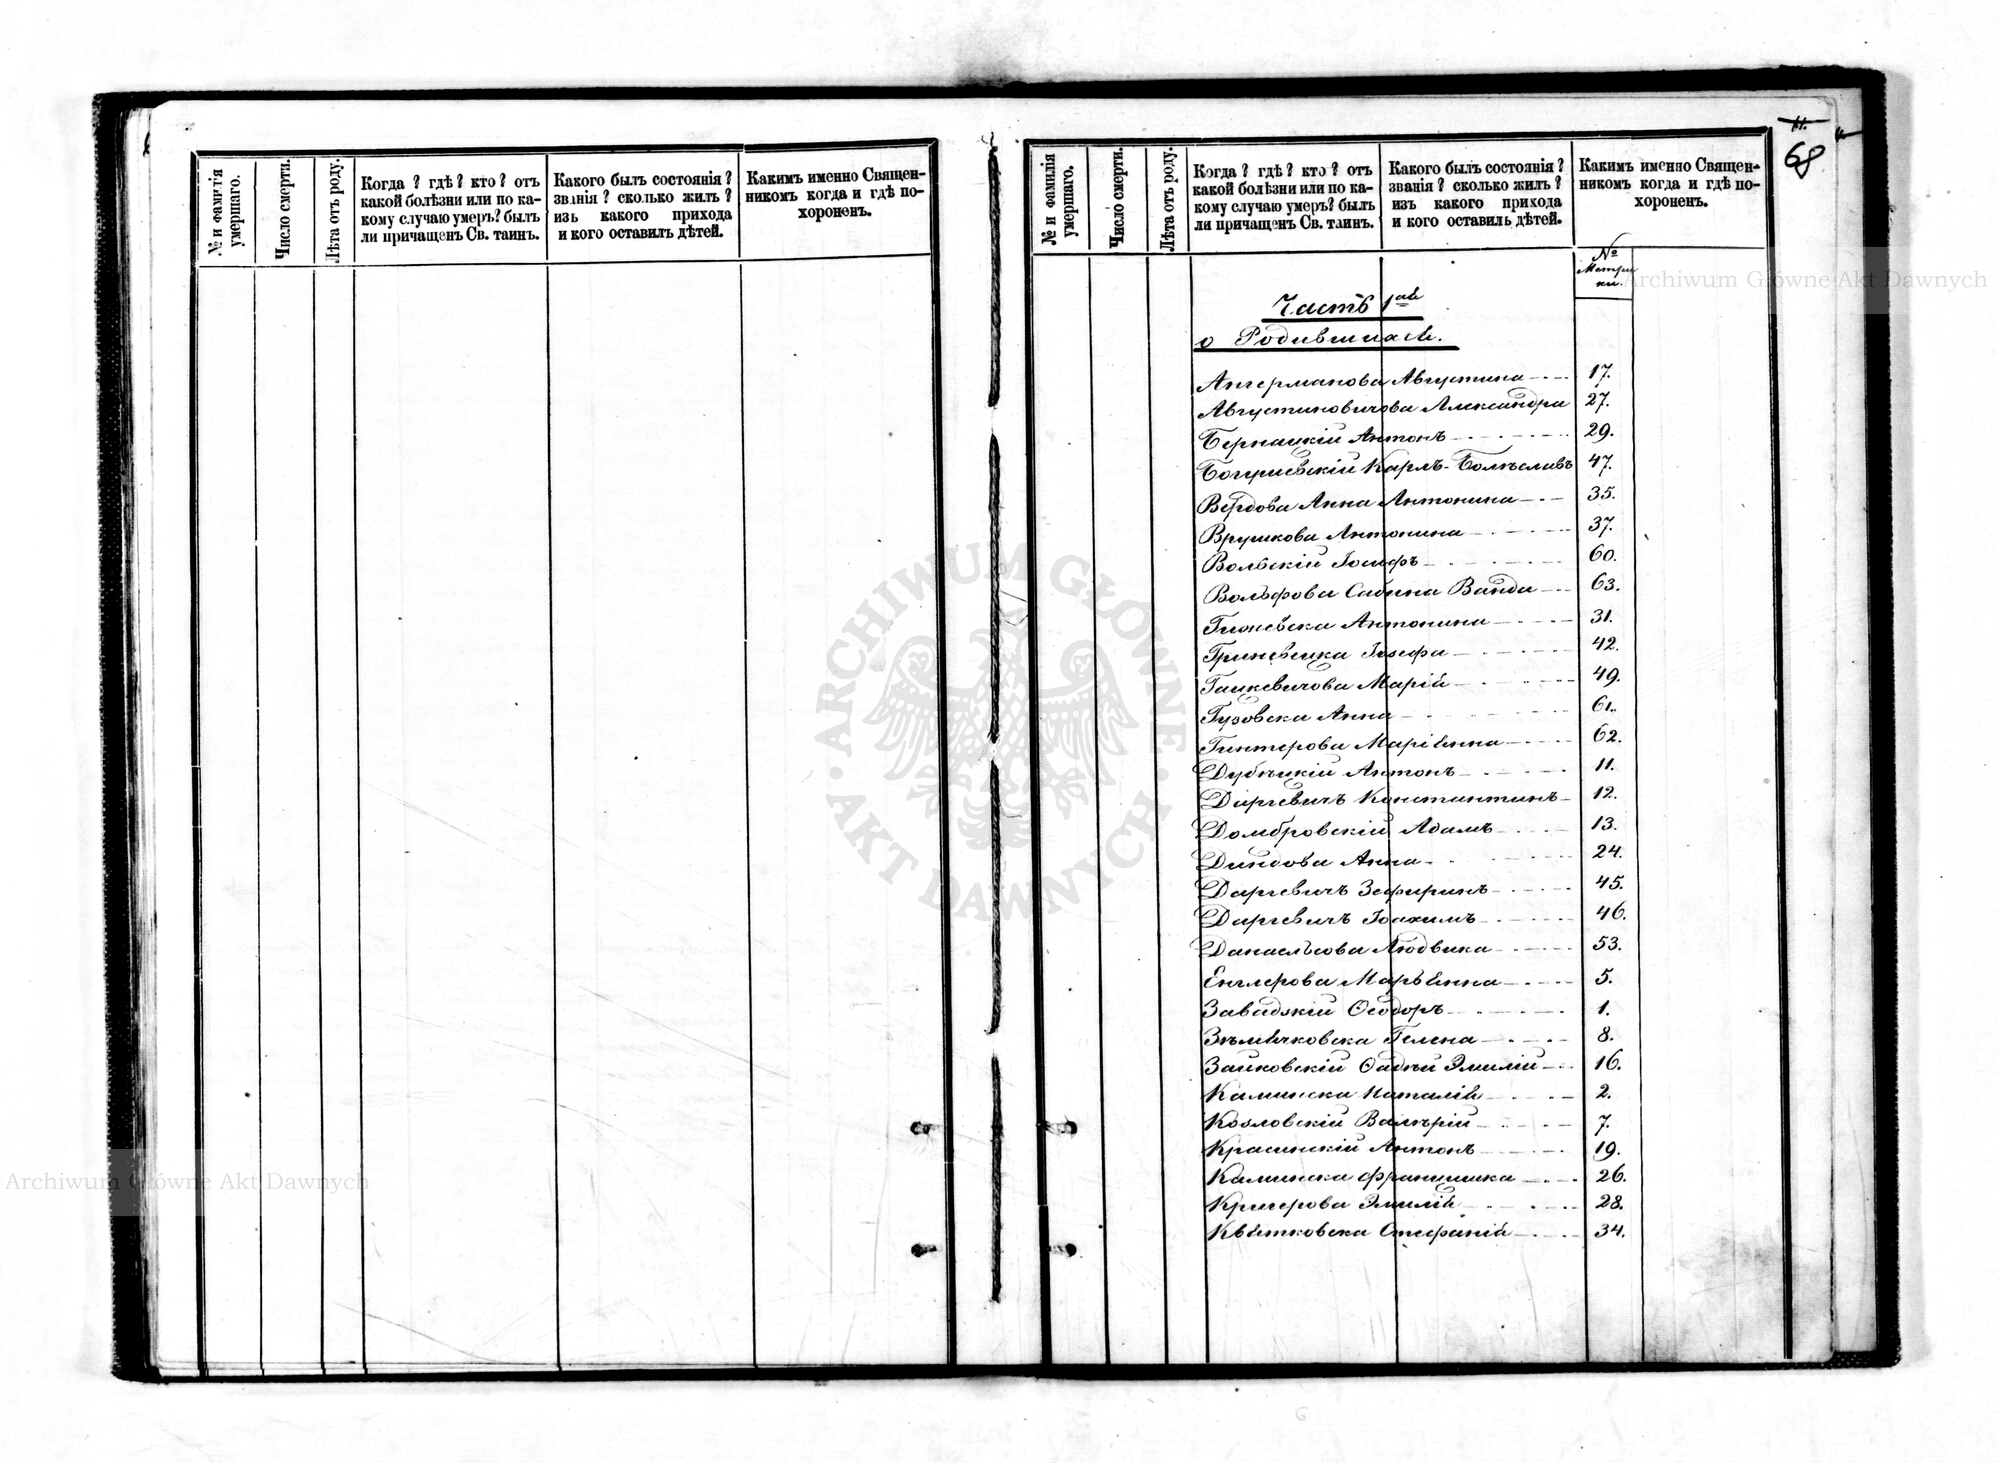 № и фамилія умершаго.
Число смерти.
Лѣта отъ роду.
Когда ? гдѣ ? кто ? отъ
какой болѣзни или по ка-
кому случаю умеръ? былъ
ли причащенъ Св. таинъ.
Какого былъ состоянія ?
званія ? сколько жилъ ?
изъ какого прихода
и кого оставилъ дѣтей.
Какимъ именно Священ-
никомъ когда и гдѣ по-
хороненъ.
№ и фамилія умершаго.
Число смерти.
Лѣта отъ роду.
Когда ? гдѣ ? кто ? отъ
какой болѣзни или по ка-
кому случаю умеръ? былъ
ли причащенъ Св. таинъ.
Какого былъ состоянія ?
званія ? сколько жилъ ?
изъ какого прихода
и кого оставилъ дѣтей.
Какимъ именно Священ-
никомъ когда и гдѣ по-
хороненъ.
68
№
Метри
ки.
Часть 1ая
о Родившихся.
Ангерманова Августина 17.
Августиновичова Александра 27.
Бернацкій Антонъ 29.
Карлъ-Болѣславъ 47.
Вердова Анна Антонина 35.
Врушкова Антонина 37.
Вольскій Іосифъ 60.
Вольфова Сабина Ванда 63.
Антонина 31.
Гриневицка Іозефа 42.
Гацкевичова Марія 49.
Гузовска Анна 61.
Гинтерова Маріянна 62.
Дубицкій Антонъ 11.
Даргевичъ Константинъ 12.
Домбровскій Адамъ 13.
Анна 24.
Даргевичъ Зефиринъ 45.
Даргевичъ Іоахимъ 46.
Людвика 53.
Енглерова Марьянна 5.
Завадзкій Ѳеодоръ 1.
Гелена 8.
Зайковскій Ѳадѣй Эмилій 16.
Каминска Наталія 2.
Козловскій Валѣрій 7.
Красинскій Антонъ 19.
Каминска Францишка 26.
Кригерова Эмилія 28.
Квятковска Стефанія 34.
Archiwum Główne Akt Dawnych
Archiwum Główne Akt Dawnych
ARCHIWUM GŁÓWNE AKT DAWNYCH